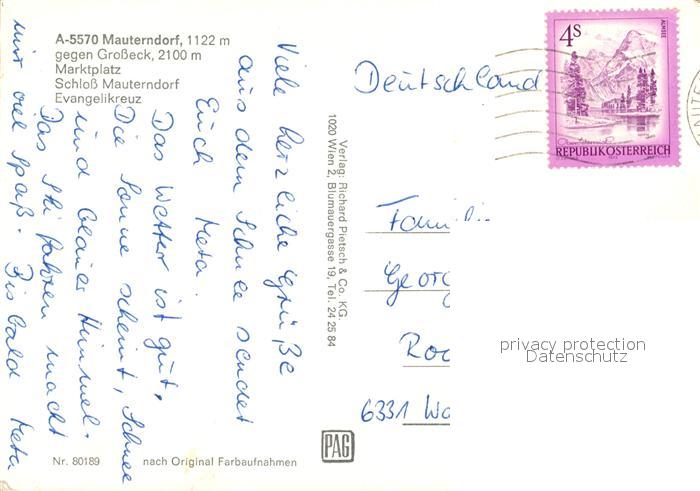 A-5570 Mauterndorf, 1122 m
gegen Großeck, 2100 m
Marktplatz
Schloß Mauterndorf
Evangelikreuz
Viele herzliche Grüße
aus dem Schnee sendet
Euch Meta.
Das Wetter ist gut,
Die Sonne scheint, Schnee
und blauer Himmel.
Das Ski fahren macht
mir viel Spaß. Bis bald Meta
Nr. 80189 nach Original Farbaufnahmen
Verlag: Richard Pietsch & Co. KG.
1020 Wien 2, Blumauergasse 19, Tel. 24 25 84
PAG
4S
ALMSEE
REPUBLIK ÖSTERREICH
Deutschland
Famili
Georg
Ro
6331 Wa
privacy protection
Datenschutz